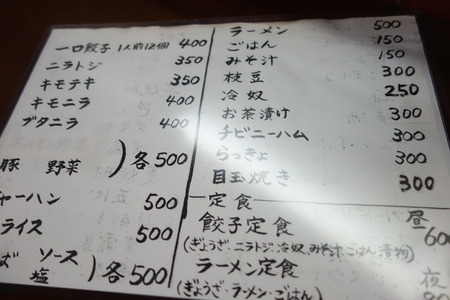 一口餃子 1人前12個 400
ニラトジ 350
キモテキ 350
キモニラ 400
ブタニラ 400
豚 野菜 ) 各500
ャーハン 500
ライス 500
ば ソース
塩 ) 各500
ラーメン 500
ごはん 150
みそ汁 150
枝豆 300
冷奴 250
お茶漬け 300
チビニーハム 300
らっきょ 300
目玉焼き 300
定食
餃子定食 昼
(ぎょうざ、ニラトジ、冷奴、みそ汁、ごはん、漬物)
ラーメン定食 夜
(ぎょうざ・ラーメン・ごはん)